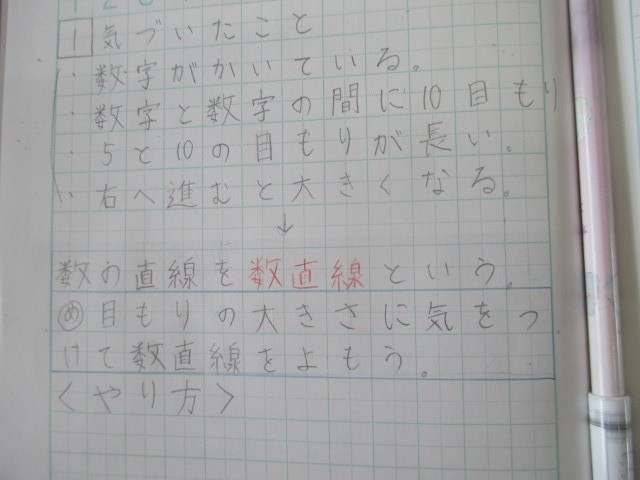 1 気づいたこと
・数字がかいている。
・数字と数字の間に10目もり
・5と10の目もりが長い。
・右へ進むと大きくなる。
↓
数の直線を数直線という。
め 目もりの大きさに気をつ
けて数直線をよもう。
<やり方>